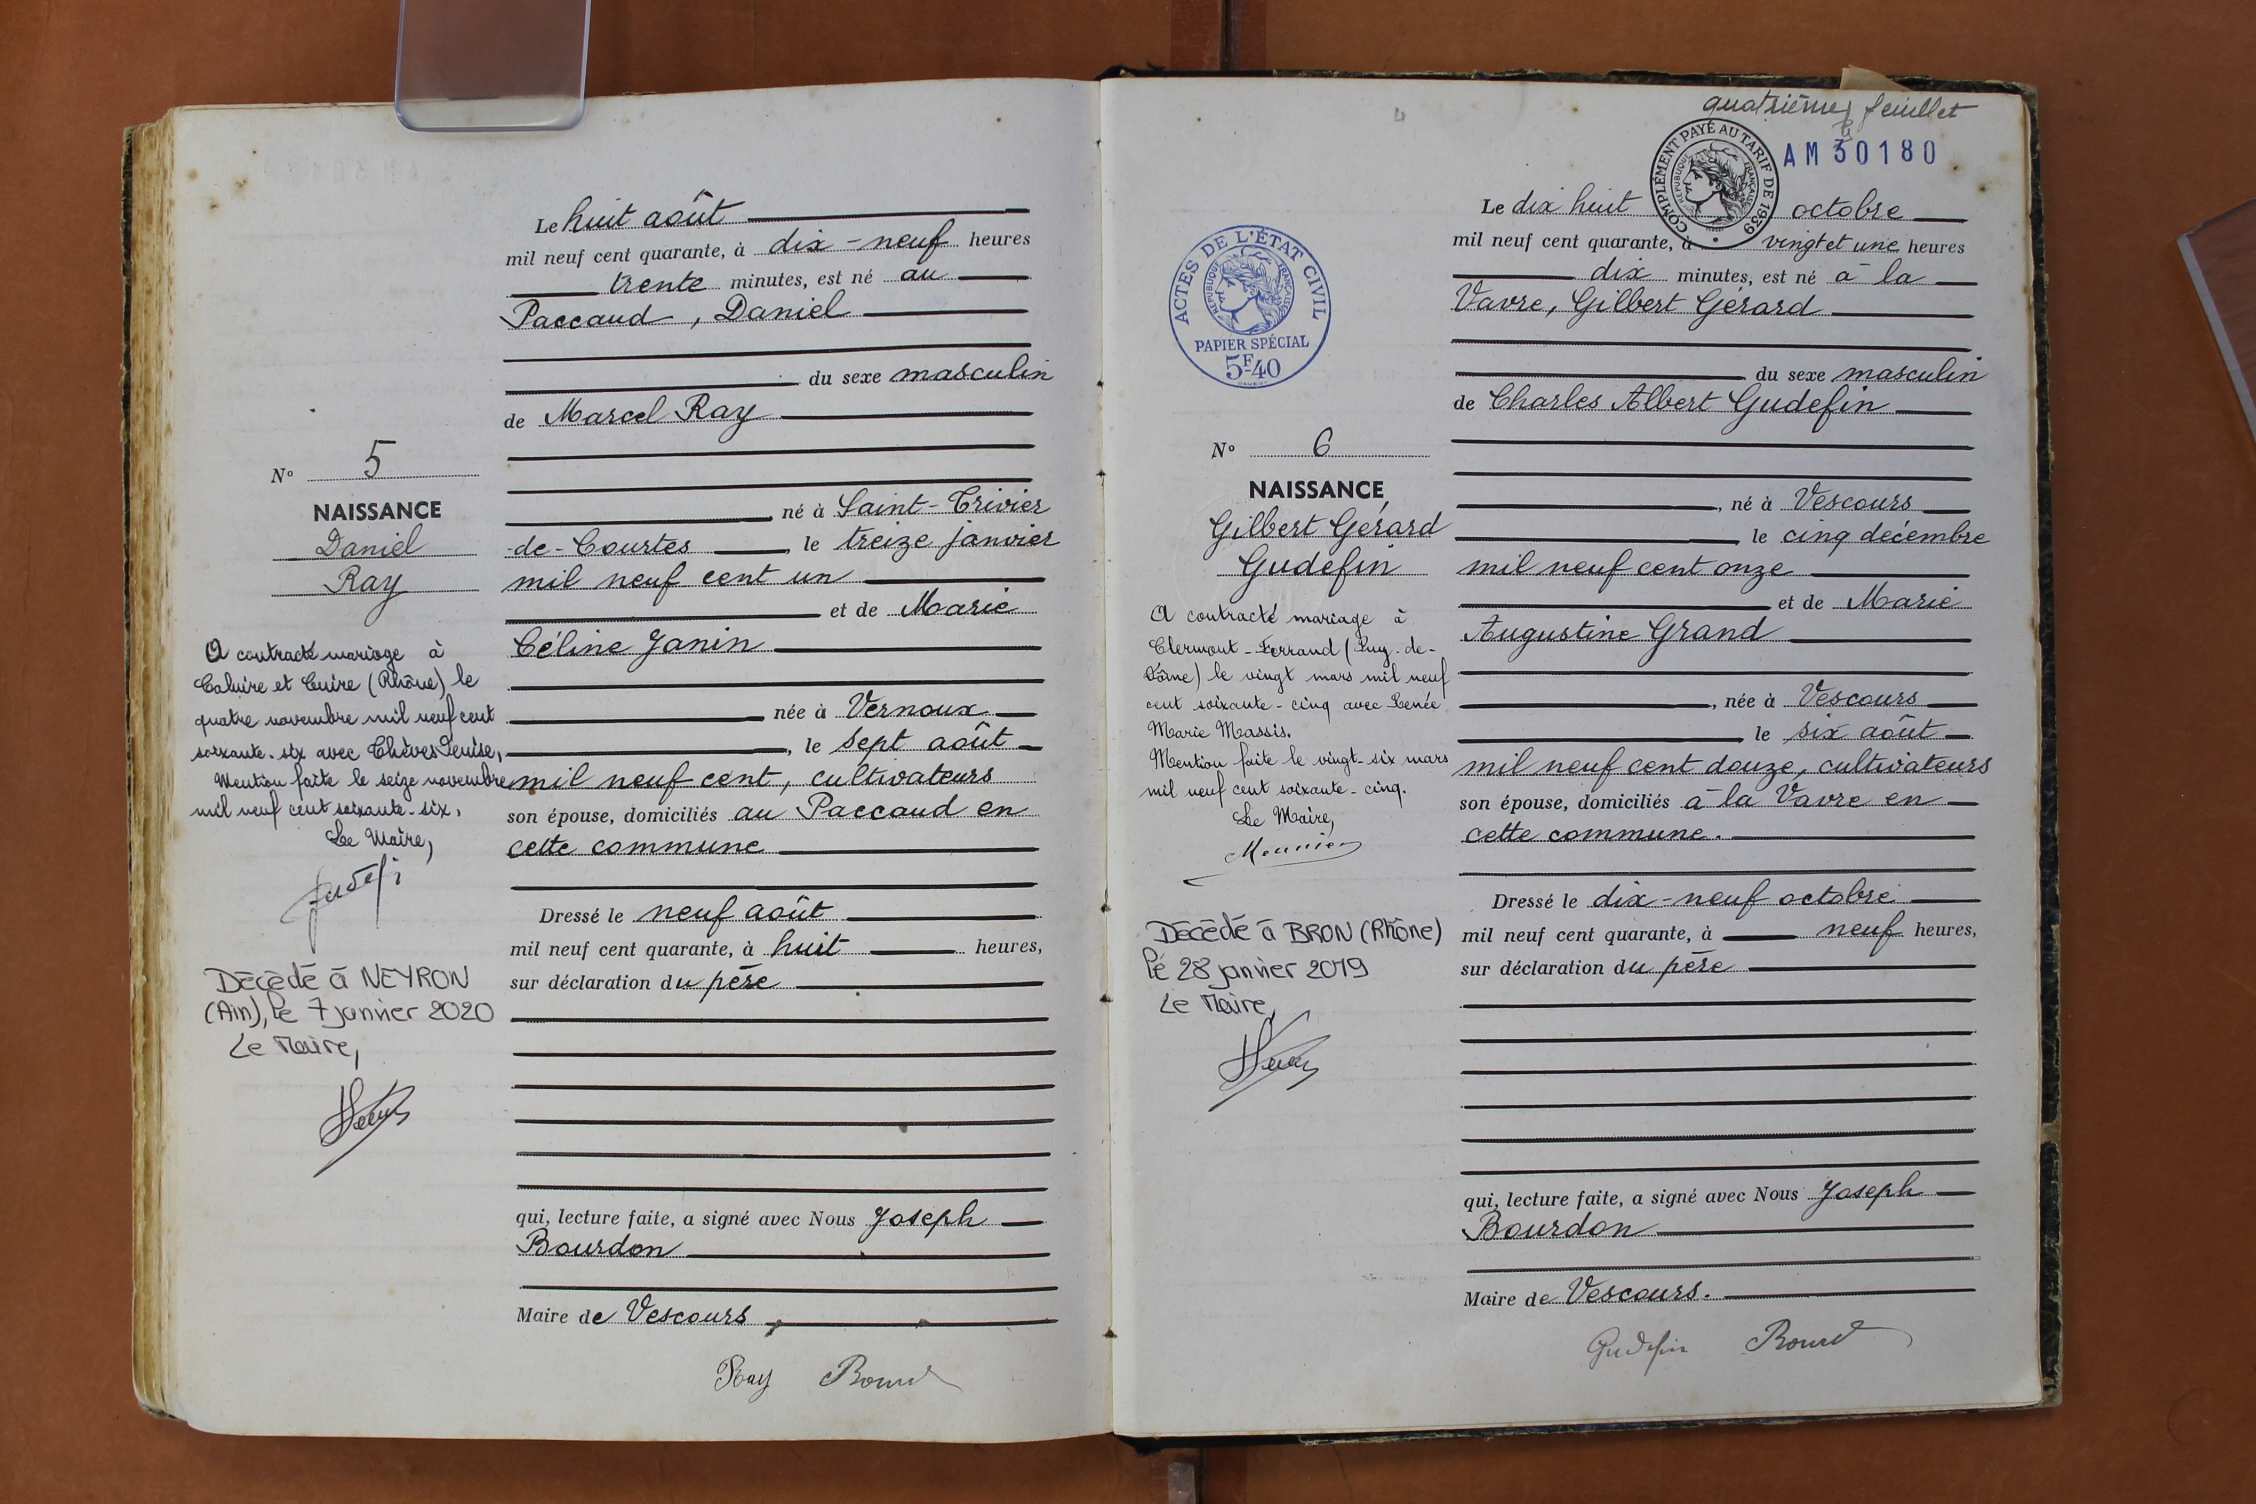 Le huit août
mil neuf cent quarante, à dix-neuf heures
trente minutes, est né au
Paccaud, Daniel
du sexe masculin
de Marcel Ray
N° 5
NAISSANCE
Daniel
Ray
né à Saint-Trivier
-de-Courtes, le treize janvier
mil neuf cent un
et de Marie
Céline Janin
née à Vernoux
, le sept août
mil neuf cent, cultivateurs
son épouse, domiciliés au Paccaud en
cette commune
A contracté mariage à
Caluire et Cuire (Rhône) le
quatre novembre mil neuf cent
soixante-six avec Denise,
Mention faite le seize novembre
mil neuf cent soixante-six,
Le Maire,
Décédé à NEYRON
(Ain), le 7 janvier 2020
Le Maire,
Dressé le neuf août
mil neuf cent quarante, à huit heures,
sur déclaration du père
qui, lecture faite, a signé avec Nous Joseph
Bourdon
Maire de Vescours
Ray
quatrième feuillet
COMPLÉMENT PAYÉ AU TARIF DE 1939
RÉPUBLIQUE FRANÇAISE
AM 30180
4
Le dix huit octobre
mil neuf cent quarante, à vingt et une heures
dix minutes, est né à la
Vavre, Gilbert Gérard
du sexe masculin
de Charles Albert Gudefin
ACTES DE L'ÉTAT CIVIL
RÉPUBLIQUE FRANÇAISE
PAPIER SPÉCIAL
5F40
N° 6
NAISSANCE
Gilbert Gérard
Gudefin
, né à Vescours
le cinq décembre
mil neuf cent onze
et de Marie
Augustine Grand
, née à Vescours
le six août
mil neuf cent douze, cultivateurs
son épouse, domiciliés à la Vavre en
cette commune.
A contracté mariage à
Clermont-Ferrand (Puy-de-
Dôme) le vingt mars mil neuf
cent soixante-cinq avec Renée
Marie Massis.
Mention faite le vingt-six mars
mil neuf cent soixante-cinq.
Le Maire,
Meunier
Décédé à BRON (Rhône)
le 28 janvier 2019
Le Maire,
Dressé le dix-neuf octobre
mil neuf cent quarante, à neuf heures,
sur déclaration du père
qui, lecture faite, a signé avec Nous Joseph
Bourdon
Maire de Vescours.
Gudefin